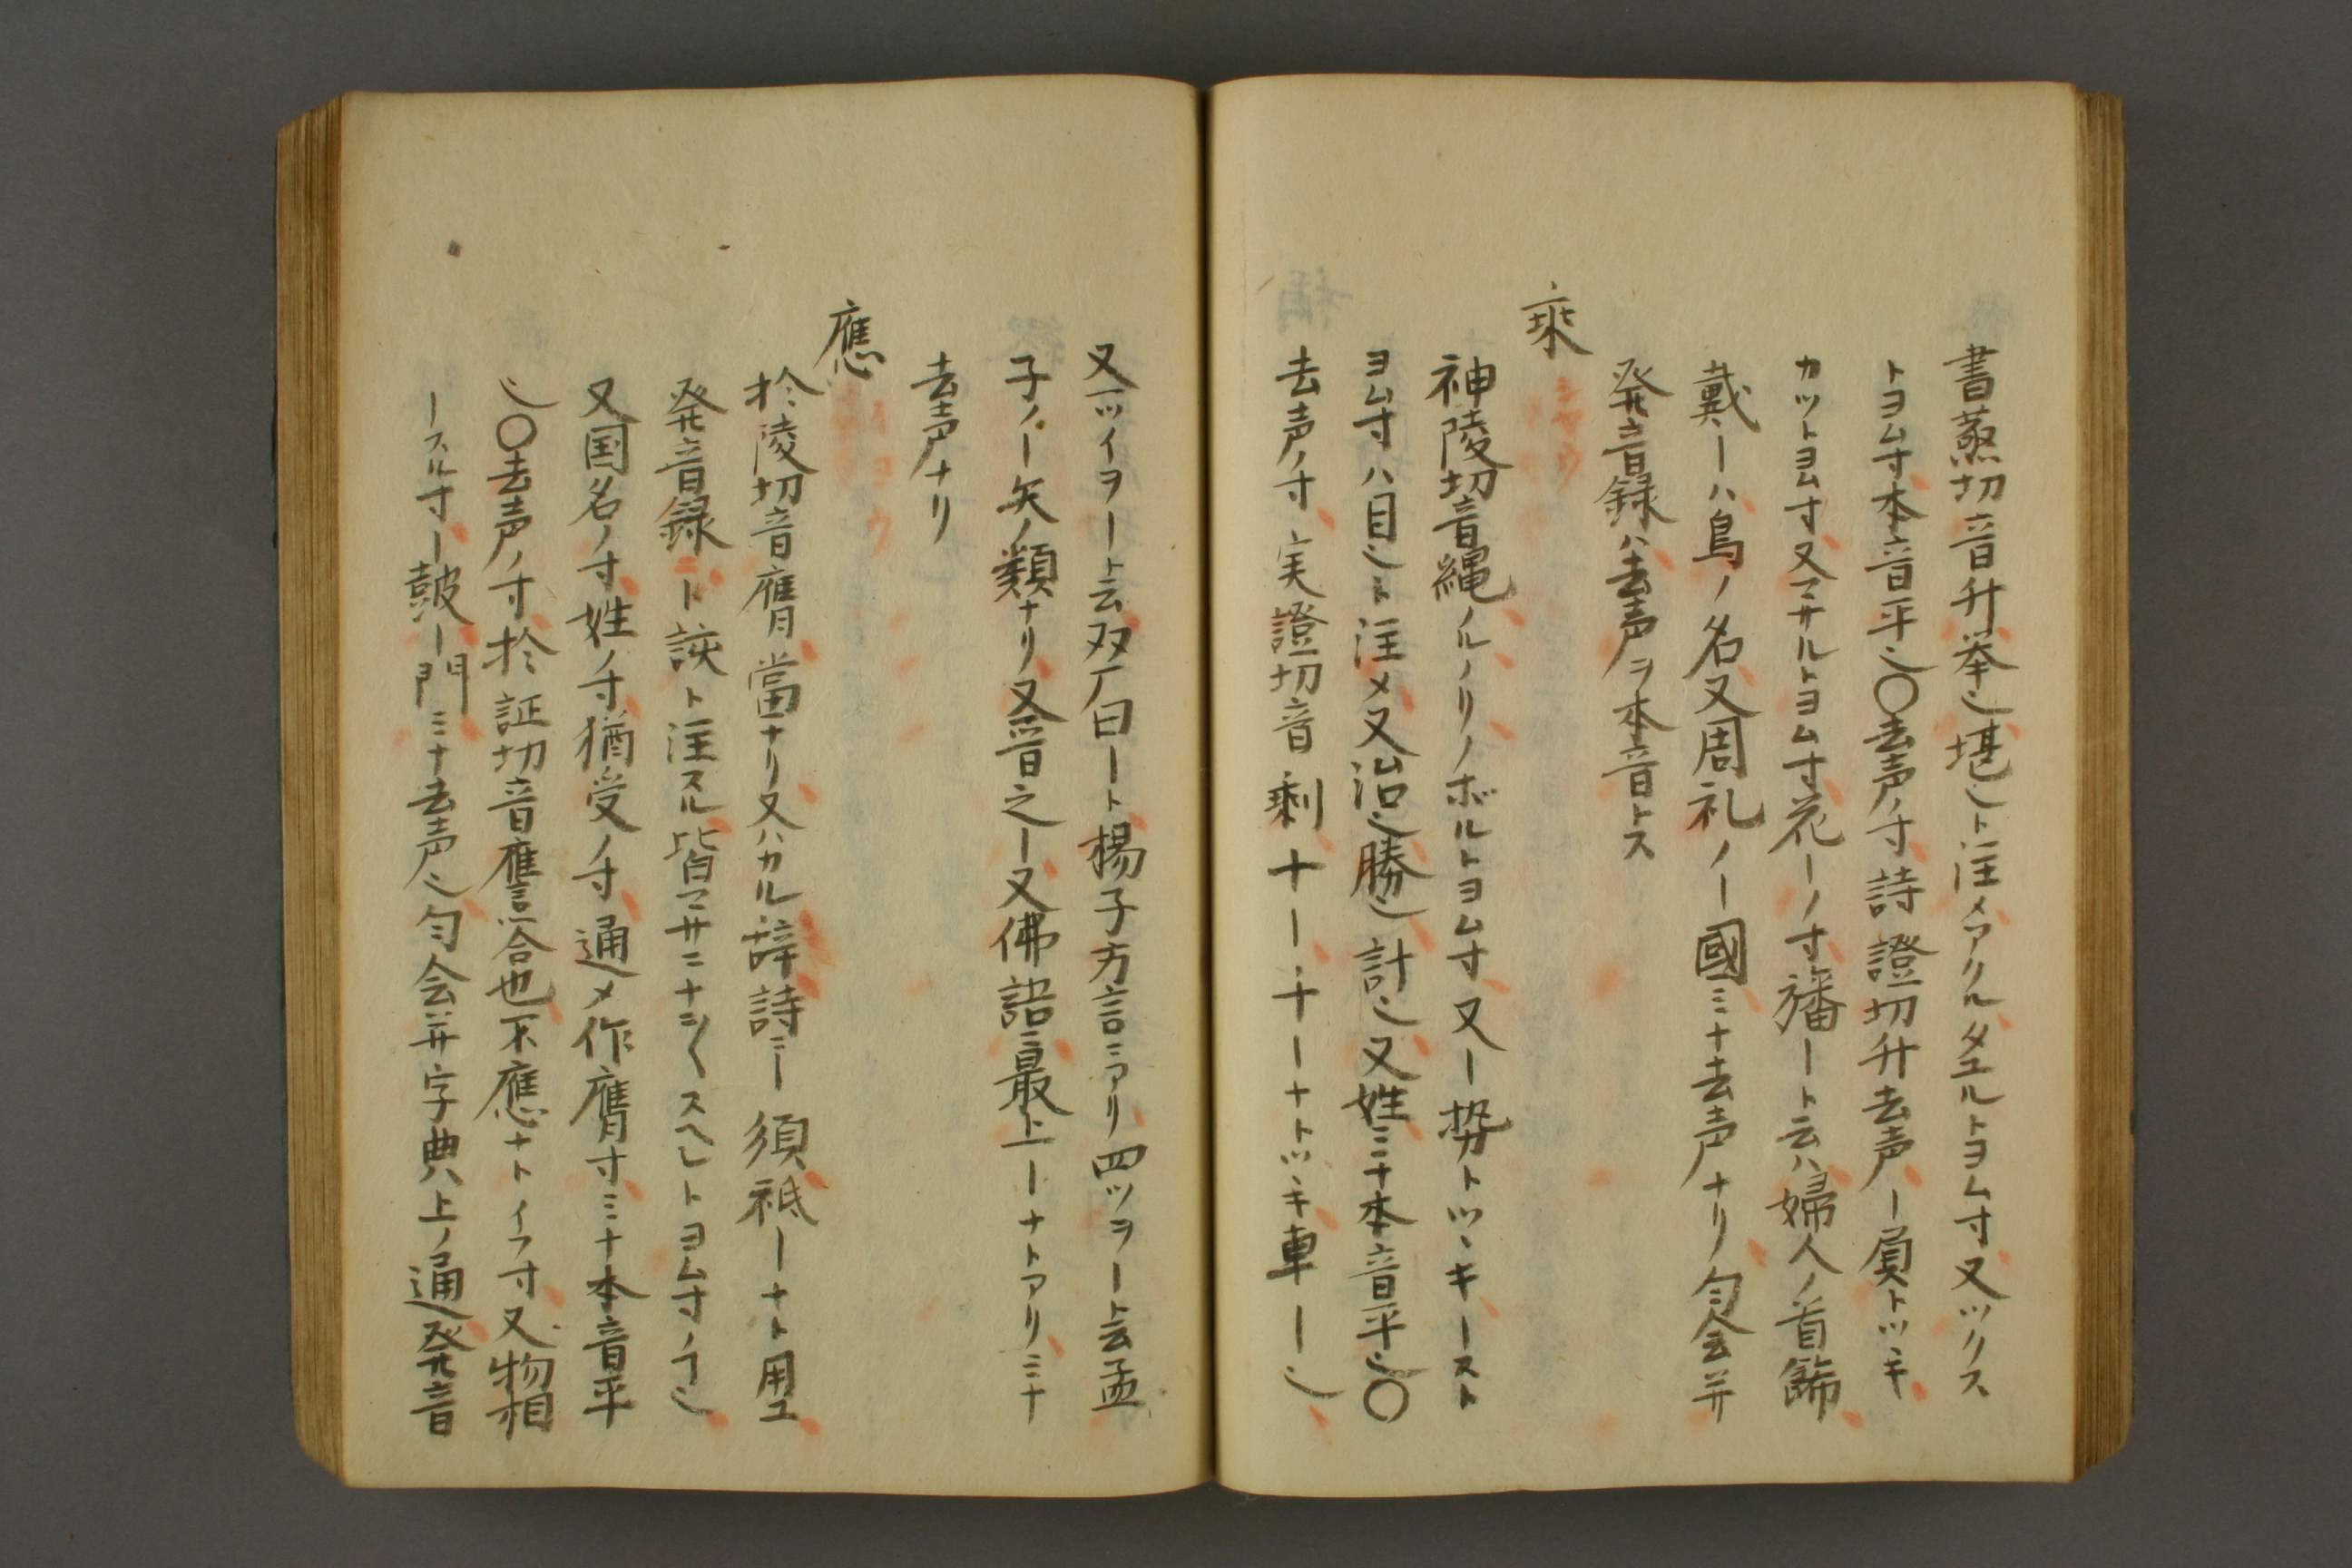 書蒸切音升挙也堪也ト注メアクルタエルトヨム寸又ツクス
トヨム寸本音平也〇去声ノ寸詩證切升去声ー負トツヽキ
カツトヨム寸又マサルトヨム寸花ーノ寸旛ート云ハ婦人ノ首飾
戴ーハ鳥ノ名又周礼ノー國ミナ去声ナリ匀会并
発音録ハ去声ヲ本音トス
乘
神陵切音縄ノルノリノボルトヨム寸又ー勢トツヽキースト
ヨム寸ハ目也ト注メ又治也勝也計也又姓ミナ本音平也〇
去声ノ寸実證切音剰十ー千ーナトツヽキ車ー也
又一ツイヲート云双厂曰ート楊子方言ニアリ四ツヲート云孟
子ノー矢ノ類ナリ又晉之ー又佛語ニ最上ーナトアリミナ
去声ナリ
應
於陵切音膺當ナリ又ハカル辞詩ニー須祗ーナト用ユ
発音録ニト訣ト注スル皆マサニナシクスヘシトヨム寸ノヿ也
又国名ノ寸姓ノ寸猶受ノ寸通メ作膺寸ミナ本音平
也〇去声ノ寸於証切音譍合也不應ナトイフ寸又物相
ースル寸ー鼓ー門ミナ去声也匀会并字典上ノ通発音